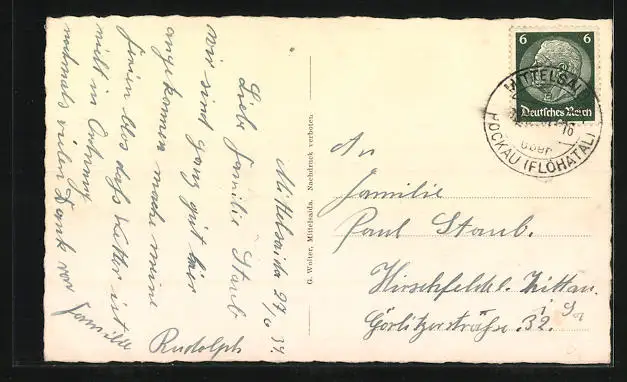 Mittelsaida 27/6 34.
Liebe Familie Staub
wir sind ganz gut hier
angekommen mache meine
ferien blos daß Wetter ist
nicht in Ordnung
nochmals vielen Dank von
Familie
Rudolph
G. Wolter, Mittelsaida. Nachdruck verboten.
6 6
Deutsches Reich
MITTELSAI
über
POCKAU (FLÖHATAL)
An
Familie
Paul Staub.
Hirschfelde b. Zittau.
i Sa
Görlitzerstraße. 32.